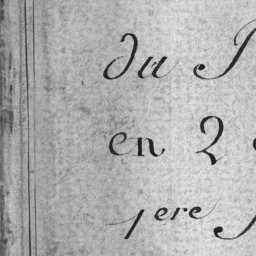 du
en 2
1ere